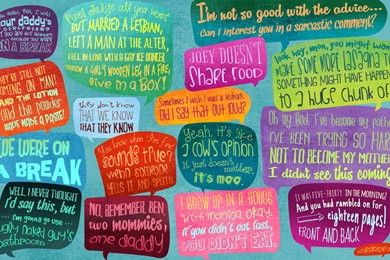 your daddy's
ON A BREAK
BUT MARRIED A LESBIAN,
LEFT A MAN AT THE ALTER,
FELL IN LOVE WITH A GAY ICE DANCER
THREW A GIRL'S WOODEN LEG IN A FIRE,
LIVE in a BOX!
I'm not so good with the advice...
Can I interest you in a sarcastic comment?
JOEY DOESN'T
SHARE FOOD
Look hey, mom, you might want
MAKE SOME MORE LASAGNA
SOMETHING MIGHT HAVE HAPP
to a HUGE CHUNK OF
THEY'RE STILL NOT
COMING ON, MAN!
AND THE LOTION
and the powder
HAVE MADE A PASTE!
they don't know
THAT WE KNOW
THAT THEY KNOW
Sometimes I wish I was a lesbian...
Did I say that out loud?
You know when
sounds true?
when someone
YELLS IT AND SPITS
Yeah, it's like
a cow's opinion
It just doesn't matter.
IT'S MOO.
I'VE BEEN TRYING SO HAR
NOT TO BECOME MY MOTHE
I didn't see this coming
WE WERE ON
A BREAK
WELL, I NEVER THOUGHT
I'd say this, but
I'm gonna go use
ugly naked guy's
bathroom
NO, REMEMBER, BEN
two mommies,
one daddy
I GREW UP IN A HOUSE
WITH Monica, okay.
if you didn't eat fast,
YOU DIDN'T EAT.
IT WAS FIVE-THIRTY IN THE MORNING!
And you had rambled on for
eighteen pages
FRONT AND BACK